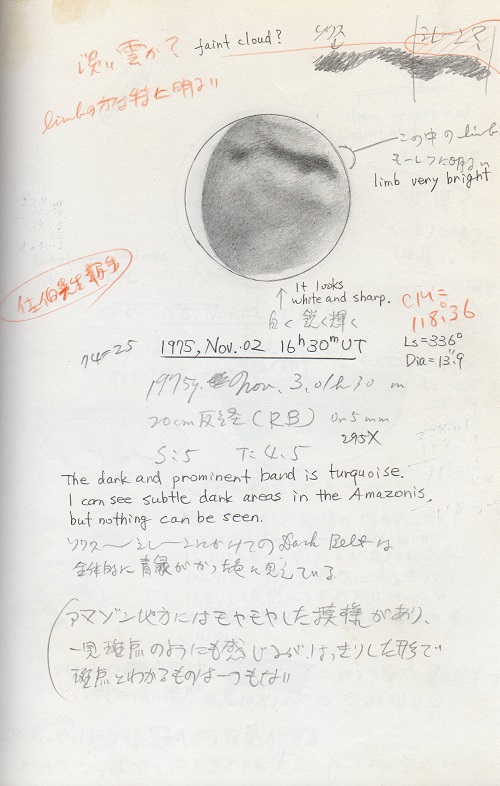 淡い雲か？ faint cloud?
limbの方は特に明るい
この中のlimb
モーレツに明るい
limb very bright
It looks
white and sharp.
白く鋭く輝く
CM=
118.°36
Ls=336°
Dia=13."9
佐伯先生報告
74-25 1975, Nov. 02 16ʰ30ᵐUT
1975y. Nov. 3. 01h 30 m
20cm反経(RB) Or 5mm
295X
S:5 T:4.5
The dark and prominent band is turquoise.
I can see subtle dark areas in the Amazonis,
but nothing can be seen.
Dark Beltは
全体的に青緑がかった色に見えている
アマゾン地方にはモヤモヤした模様があり、
一見斑点のようにも感じるが、はっきりした形で
斑点とわかるものは一つもない